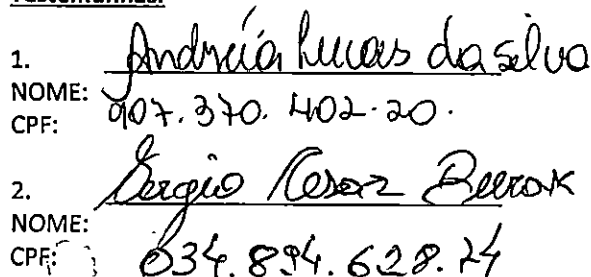 Testemunhas:
1. Andréia Lucas da Silva
NOME:
CPF: 907.370.402-20.
2. Sergio Cesar
NOME:
CPF: 034.894.628.74